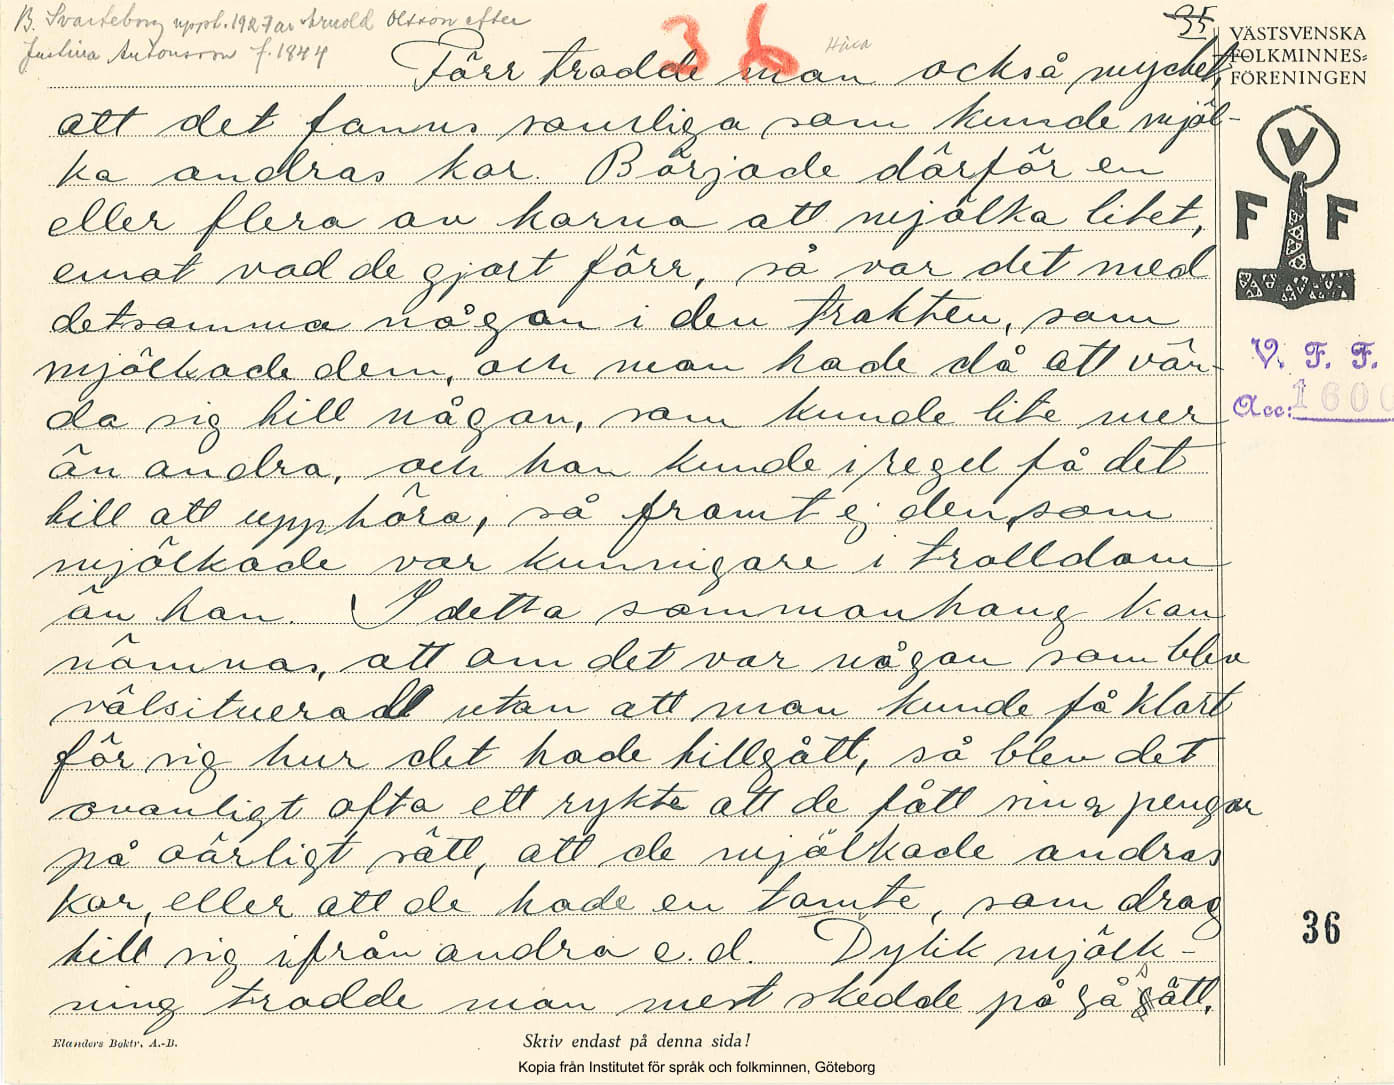 B. Svarteborg uppt. 1927 av Arnold Olsson efter
Justina Antonsson f. 1844
36
Häxa
35
VÄSTSVENSKA
FOLKMINNES=
FÖRENINGEN
Förr trodde man också mycket,
att det fanns somliga som kunde mjöl-
ka andras kor. Började därför en
eller flera av korna att mjölka litet,
emot vad de gjort förr, så var det med
detsamma någon i den trakten, som
mjölkade dem, och man hade då att vän-
da sig till någon, som kunde lite mer
än andra, och han kunde i regel få det
till att upphöra, så framt ej den, som
mjölkade var kunnigare i trolldom
än han. I detta sammanhang kan
nämnas, att om det var någon som blev
välsituerad utan att man kunde få klart
för sig hur det hade tillgått, så blev det
ovanligt ofta ett rykte att de fått sina pengar
på oärligt sätt, att de mjölkade andras
kor, eller att de hade en tomte, som drog
till sig ifrån andra e.d. Dylik mjölk-
ning trodde man mest skedde på så sätt,
V
F F
V. F. F.
Acc: 1600
36
Elanders Boktr. A.-B.
Skriv endast på denna sida!
Kopia från Institutet för språk och folkminnen, Göteborg